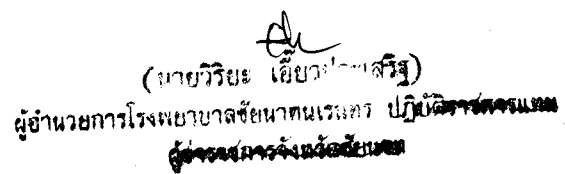 (นายวิริยะ เอี๊ยวประเสริฐ)
ผู้อำนวยการโรงพยาบาลชัยนาทนเรนทร ปฏิบัติราชการแทน
ผู้ว่าราชการจังหวัดชัยนาท